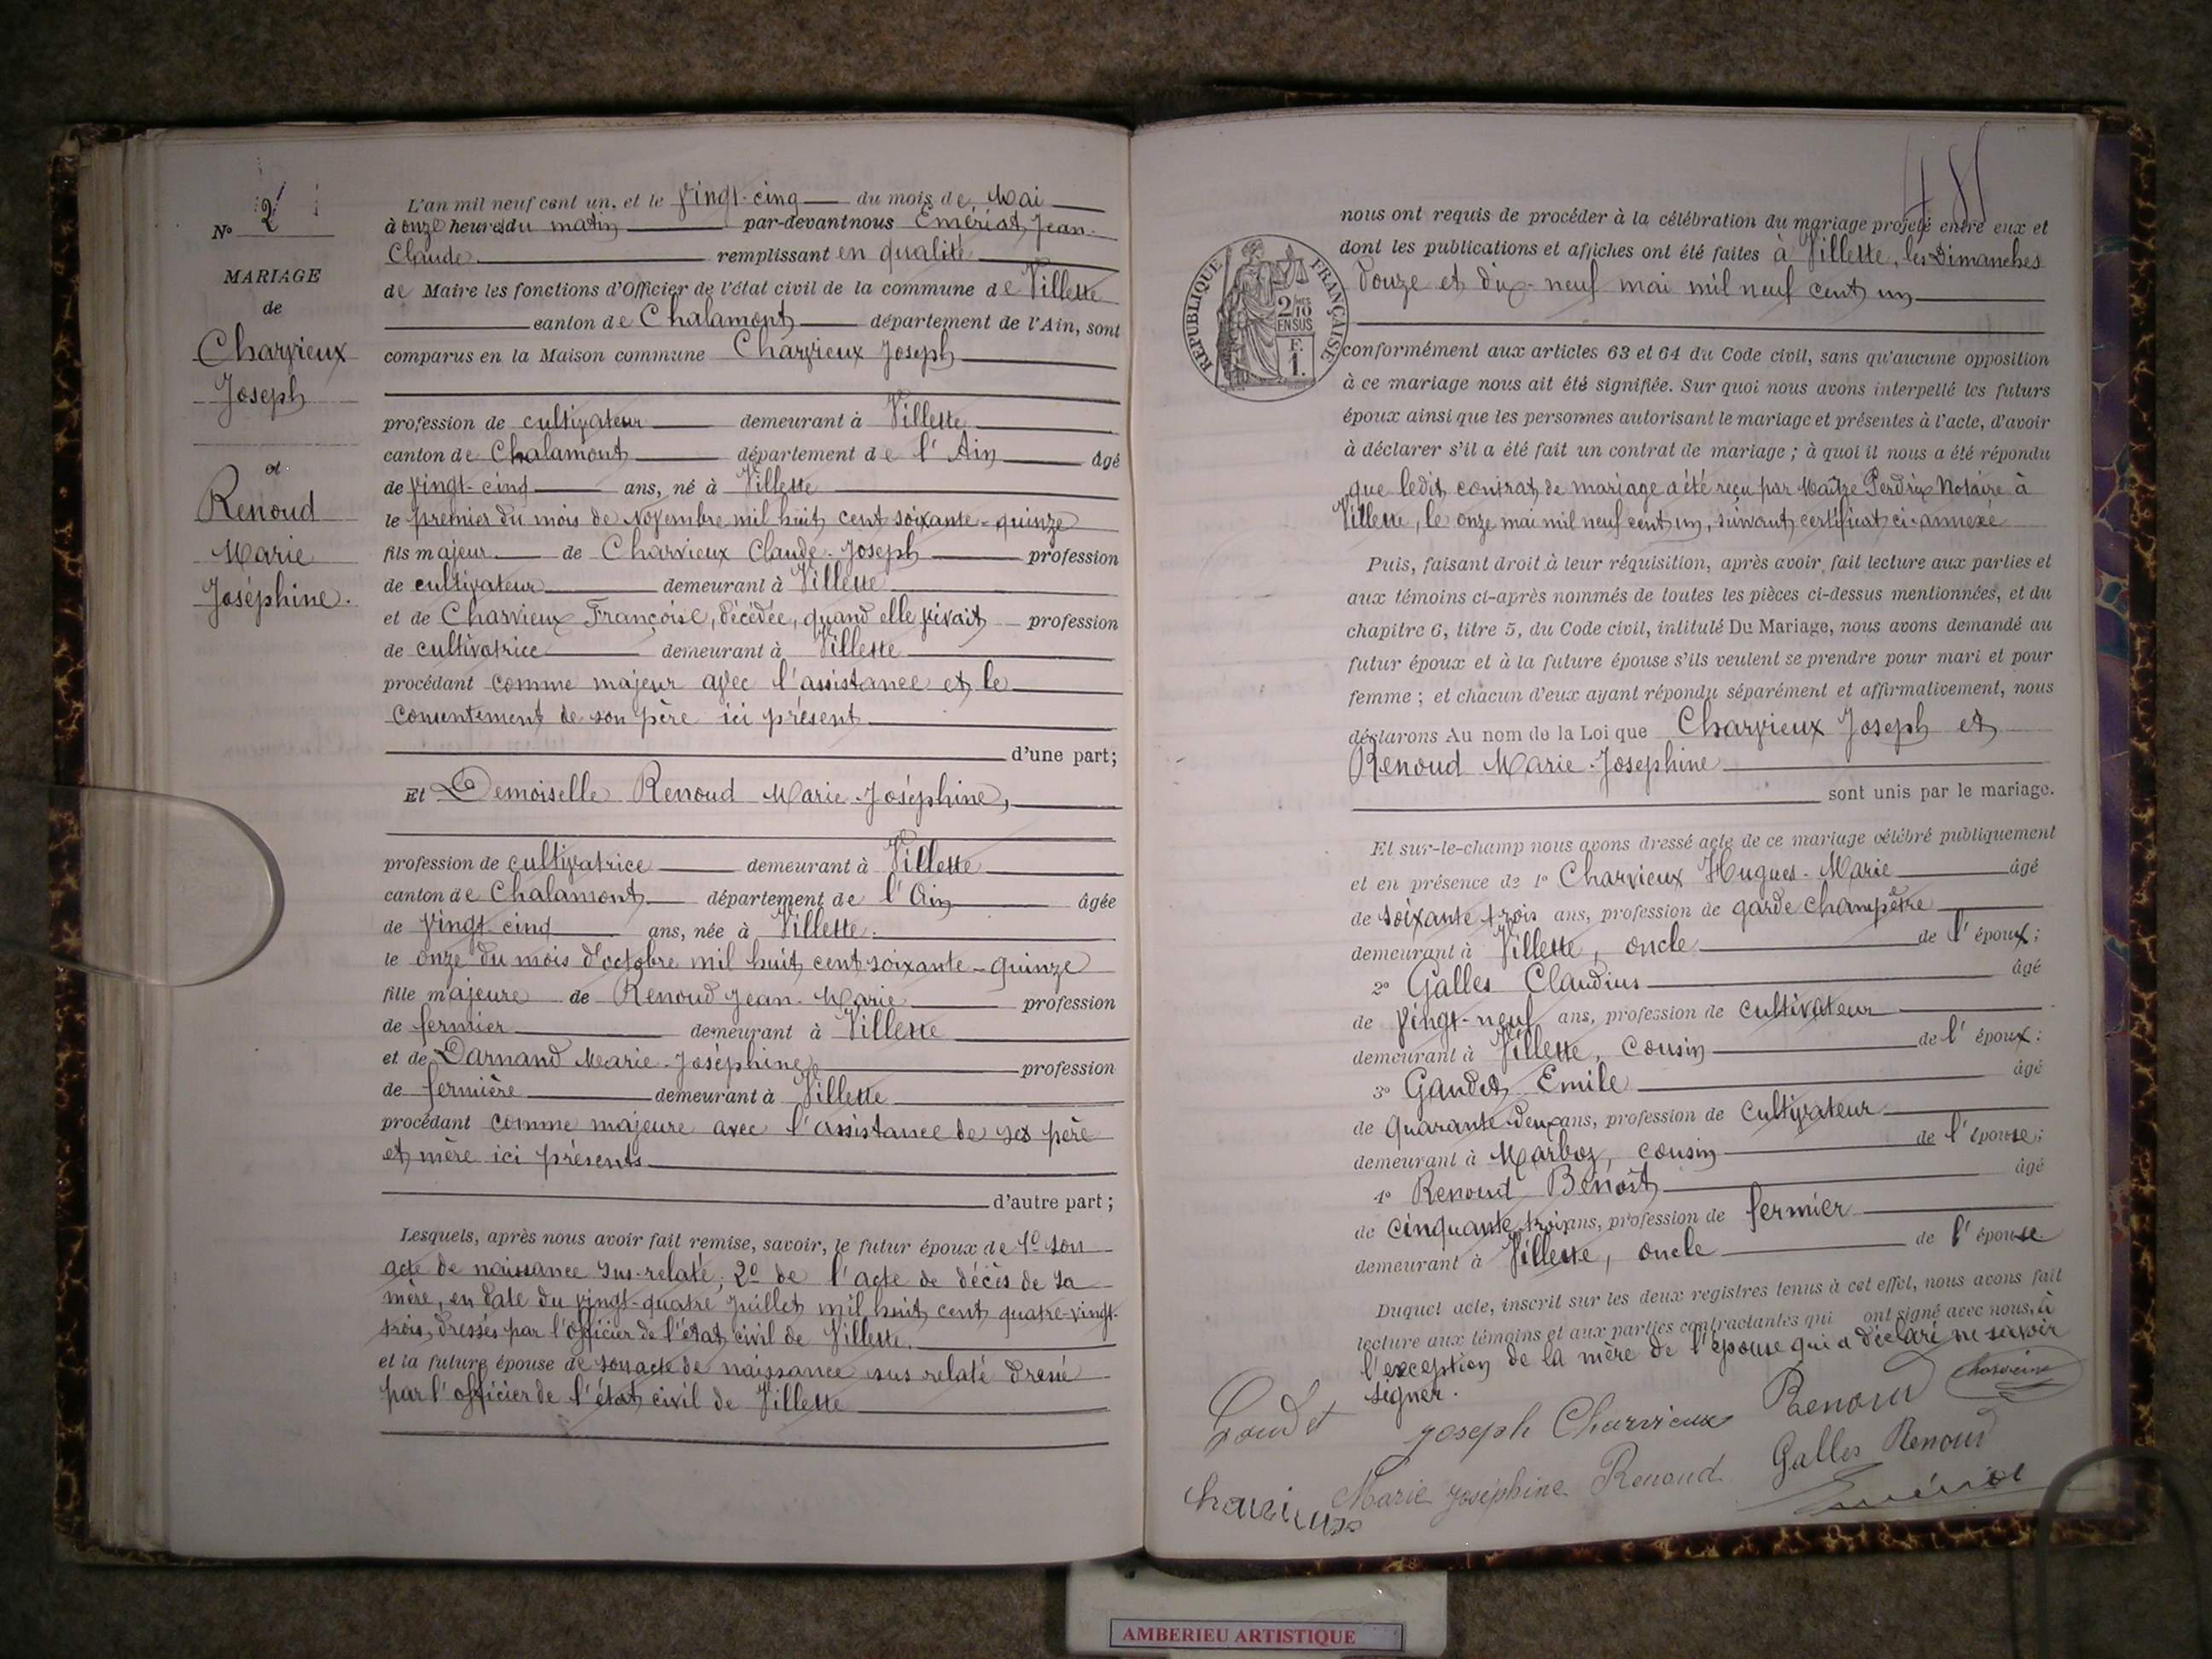 N° 2
MARIAGE
de
Charvieux
Joseph
et
Renoud
Marie
Joséphine.
L'an mil neuf cent un, et le vingt-cinq du mois de Mai
à onze heures du matin par-devant nous Emériat Jean-
Claude remplissant en qualité
de Maire les fonctions d'Officier de l'état civil de la commune de Villette
canton de Chalamont département de l'Ain, sont
comparus en la Maison commune Charvieux Joseph
profession de cultivateur demeurant à Villette
canton de Chalamont département de l'Ain âgé
de vingt-cinq ans, né à Villette
le premier du mois de Novembre mil huit cent soixante-quinze
fils majeur de Charvieux Claude-Joseph profession
de cultivateur demeurant à Villette
et de Charvieux Françoise, décédée, quand elle vivait profession
de cultivatrice demeurant à Villette
procédant comme majeur avec l'assistance et le
consentement de son père ici présent
d'une part;
Et Demoiselle Renoud Marie-Joséphine,
profession de cultivatrice demeurant à Villette
canton de Chalamont département de l'Ain âgée
de vingt-cinq ans, née à Villette.
le onze du mois d'octobre mil huit cent soixante-quinze
fille majeure de Renoud Jean-Marie profession
de fermier demeurant à Villette
et de Darnand Marie-Joséphine profession
de fermière demeurant à Villette
procédant comme majeure avec l'assistance de ses père
et mère ici présents
d'autre part;
Lesquels, après nous avoir fait remise, savoir, le futur époux de 1° son
acte de naissance sus-relaté; 2° de l'acte de décès de sa
mère, en date du vingt-quatre Juillet mil huit cent quatre-vingt-
trois, dressés par l'officier de l'état civil de Villette.
et la future épouse de son acte de naissance sus relaté dressé
par l'officier de l'état civil de Villette
RÉPUBLIQUE FRANÇAISE
2/10
EN SUS
F.
1.
nous ont requis de procéder à la célébration du mariage projeté entre eux et
dont les publications et affiches ont été faites à Villette, les Dimanches
douze et dix-neuf mai mil neuf cent un
conformément aux articles 63 et 64 du Code civil, sans qu'aucune opposition
à ce mariage nous ait été signifiée. Sur quoi nous avons interpellé les futurs
époux ainsi que les personnes autorisant le mariage et présentes à l'acte, d'avoir
à déclarer s'il a été fait un contrat de mariage; à quoi il nous a été répondu
que ledit contrat de mariage a été reçu par Maître Perdrix Notaire à
Villette, le onze mai mil neuf cent un, suivant certificat ci-annexé
Puis, faisant droit à leur réquisition, après avoir fait lecture aux parties et
aux témoins ci-après nommés de toutes les pièces ci-dessus mentionnées, et du
chapitre 6, titre 5, du Code civil, intitulé Du Mariage, nous avons demandé au
futur époux et à la future épouse s'ils veulent se prendre pour mari et pour
femme; et chacun d'eux ayant répondu séparément et affirmativement, nous
déclarons Au nom de la Loi que Charvieux Joseph et
Renoud Marie-Josephine
sont unis par le mariage.
Et sur-le-champ nous avons dressé acte de ce mariage célébré publiquement
et en présence de 1° Charvieux Hugues-Marie âgé
de soixante trois ans, profession de garde champêtre
demeurant à Villette, oncle de l'époux;
2° Galles Claudius âgé
de vingt-neuf ans, profession de cultivateur
demeurant à Villette, cousin de l'époux:
3° Gaudet Emile âgé
de quarante deux ans, profession de cultivateur
demeurant à Marboz, cousin de l'épouse;
4° Renoud Benoît âgé
de cinquante trois ans, profession de fermier
demeurant à Villette, oncle de l'épouse.
Duquel acte, inscrit sur les deux registres tenus à cet effet, nous avons fait
lecture aux témoins et aux parties contractantes qui ont signé avec nous, à
l'exception de la mère de l'épouse qui a déclaré ne savoir
signer.
Goudet Joseph Charvieux Renoud Charvieux
Charvieux Marie Joséphine Renoud Galles Renoud
Emériat
AMBERIEU ARTISTIQUE